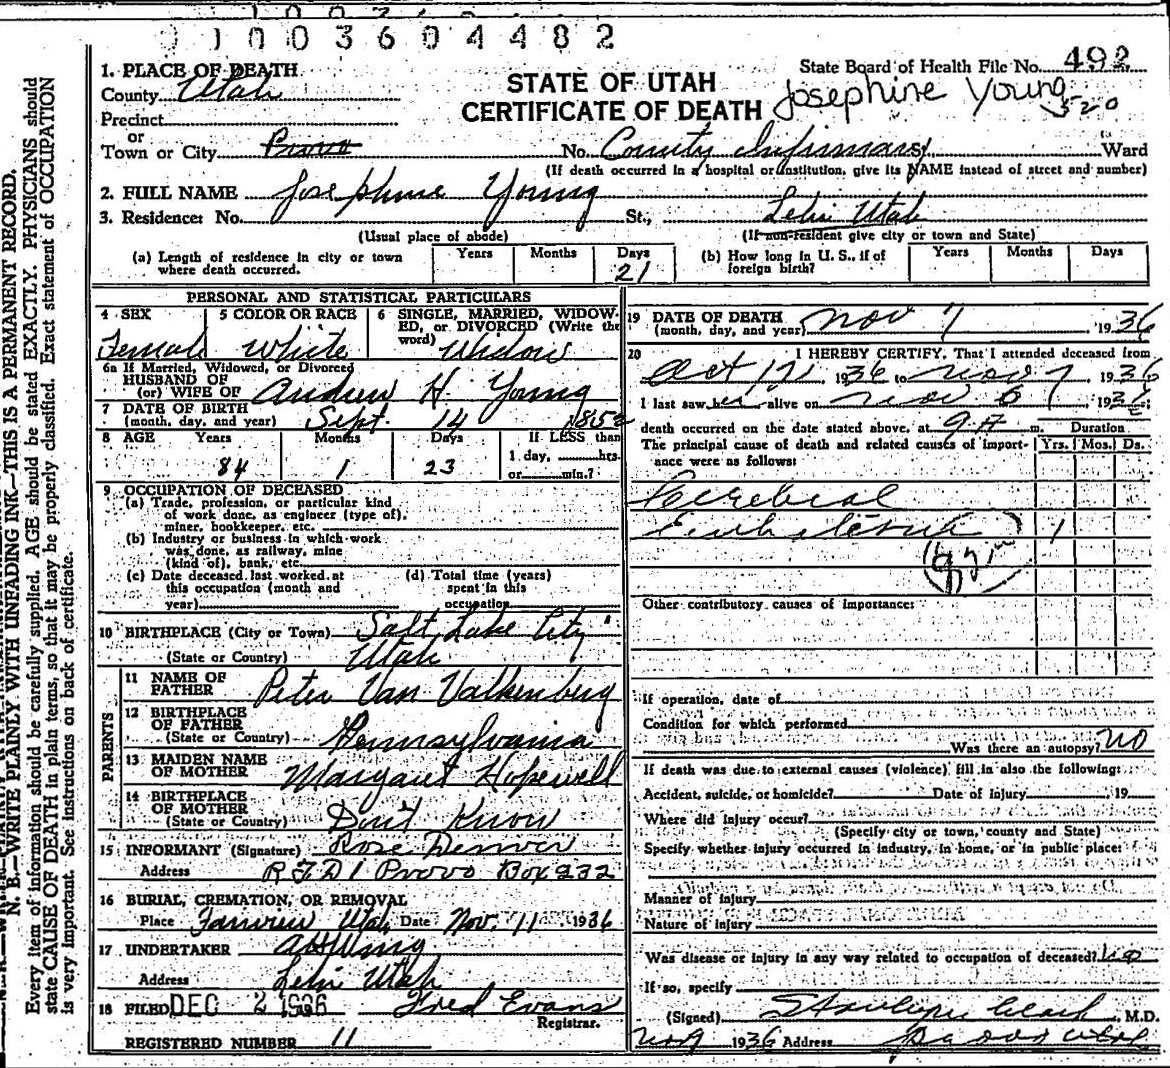 01003604482
State Board of Health File No. 492
1. PLACE OF DEATH
County Utah
STATE OF UTAH
CERTIFICATE OF DEATH
Josephine Young
520
Precinct
or
Town or City Provo No. County Infirmary St., Ward
(If death occurred in a hospital or institution, give its NAME instead of street and number)
2. FULL NAME Josephine Young
3. Residence: No. St., Lehi Utah
(Usual place of abode) (If non-resident give city or town and State)
(a) Length of residence in city or town where death occurred. Years Months Days 21
(b) How long in U. S., if of foreign birth? Years Months Days
PERSONAL AND STATISTICAL PARTICULARS
4 SEX Female
5 COLOR OR RACE White
6 SINGLE, MARRIED, WIDOWED, or DIVORCED (Write the word) Widow
6a If Married, Widowed, or Divorced
HUSBAND OF
(or) WIFE OF Andrew H. Young
7 DATE OF BIRTH
(month, day, and year) Sept. 14 1852
8 AGE Years Months Days If LESS than
84 1 23 1 day, hrs.
or min.?
9 OCCUPATION OF DECEASED
(a) Trade, profession, or particular kind
of work done, as engineer (type of),
miner, bookkeeper, etc.
(b) Industry or business in which work
was done, as railway, mine
(kind of), bank, etc.
(c) Date deceased last worked at
this occupation (month and
year)
(d) Total time (years)
spent in this
occupation
10 BIRTHPLACE (City or Town) Salt Lake City
(State or Country) Utah
PARENTS
11 NAME OF
FATHER Peter Van Valkenberg
12 BIRTHPLACE
OF FATHER
(State or Country) Pennsylvania
13 MAIDEN NAME
OF MOTHER Margaret Hopewell
14 BIRTHPLACE
OF MOTHER
(State or Country) Don't Know
15 INFORMANT (Signature) Rose Denver
Address R.F.D 1 Provo Box 232
16 BURIAL, CREMATION, OR REMOVAL
Place Utah Date Nov. 11 1936
17 UNDERTAKER
Address Lehi Utah
18 FILED DEC 2 1936 Fred Evans
Registrar.
REGISTERED NUMBER 11
19 DATE OF DEATH
(month, day, and year) Nov 7 1936
20 I HEREBY CERTIFY, That I attended deceased from
Oct 12 1936 to Nov 7 1936
I last saw her alive on Nov 6 1936
death occurred on the date stated above, at 9 A m. Duration
The principal cause of death and related causes of importance were as follows: Yrs. Mos. Ds.
Cerebral
1
Other contributory causes of importance:
If operation, date of
Condition for which performed
Was there an autopsy? No
If death was due to external causes (violence) fill in also the following:
Accident, suicide, or homicide? Date of injury , 19
Where did injury occur?
(Specify city or town, county and State)
Specify whether injury occurred in industry, in home, or in public place:
Manner of injury
Nature of injury
Was disease or injury in any way related to occupation of deceased? No
If so, specify
(Signed) , M.D.
Nov 9 1936 Address Provo Utah
N. B.—WRITE PLAINLY WITH UNFADING INK—THIS IS A PERMANENT RECORD.
Every item of information should be carefully supplied. AGE should be stated EXACTLY. PHYSICIANS should
state CAUSE OF DEATH in plain terms, so that it may be properly classified. Exact statement of OCCUPATION
is very important. See instructions on back of certificate.